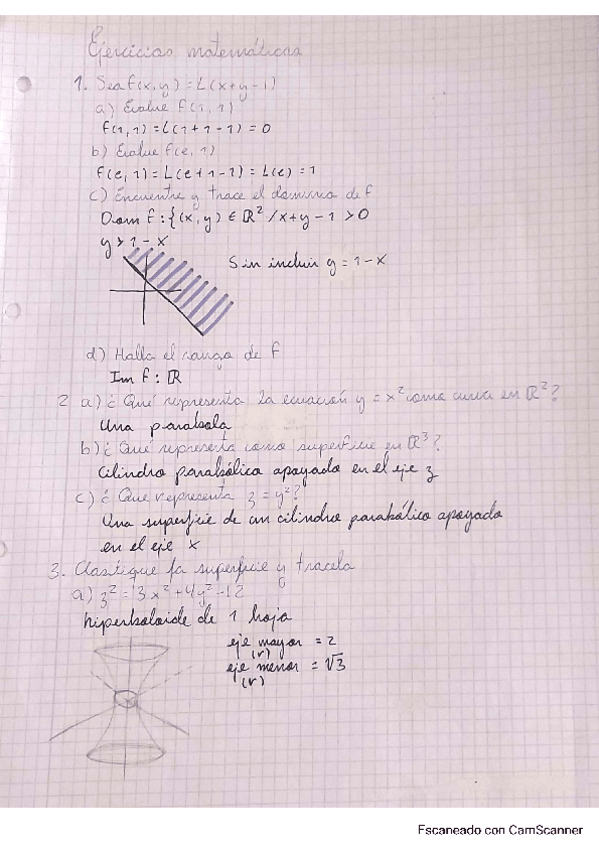 Ejercicios matemáticos
1. Sea f(x,y) = L(x+y-1)
a) Evalue f(1,1)
f(1,1) = L(1+1-1) = 0
b) Evalue f(e,1)
f(e,1) = L(e+1-1) = L(e) = 1
c) Encuentre y trace el dominio de f
Dom f : {(x,y) ∈ ℝ² / x+y-1 > 0
y > 1-x
Sin incluir y = 1-x
d) Halla el rango de f
Im f : ℝ
2 a) ¿Qué representa la ecuación y = x² como curva en ℝ²?
Una parabola
b) ¿Qué representa como superficie en ℝ³?
Cilindro parabólico apoyado en el eje z
c) ¿Que representa z = y²?
Una superficie de un cilindro parabólico apoyado
en el eje x
3. Clasifique la superficie y tracela
a) z² = 3x² + 4y² - 12
hiperboloide de 1 hoja
eje mayor = 2
(r)
eje menor = √3
(r)
Escaneado con CamScanner